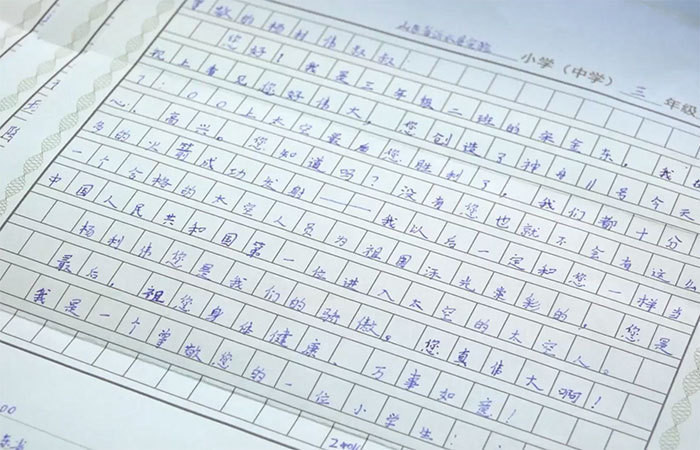 小学（中学） 三 年级
敬的杨利伟叔叔：
您好！我是三年级二班的 金东，我
机上看见您好伟大，您创造了神舟11号今天
7：00上太空最后您胜利了，我们都十分
心，高兴。您知道吗？没有您也就不会有这么
多的火箭成功发射——我以后一定和您一样当
一个合格的太空人员为祖国添光荣彩的，您是
中国人民共和国第一位进入太空的太空人。
杨利伟您是我们的骄傲。您真伟大啊！
最后，祖您身体健康、万事如意！
我是一个掌敬您的一位小学生：